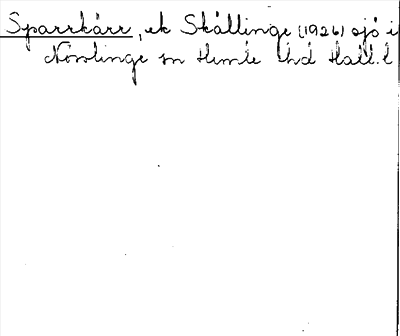 Sparrkärr, ek Skällinge (1926) sjö i
Nösslinge sn Himle hd Hall. l